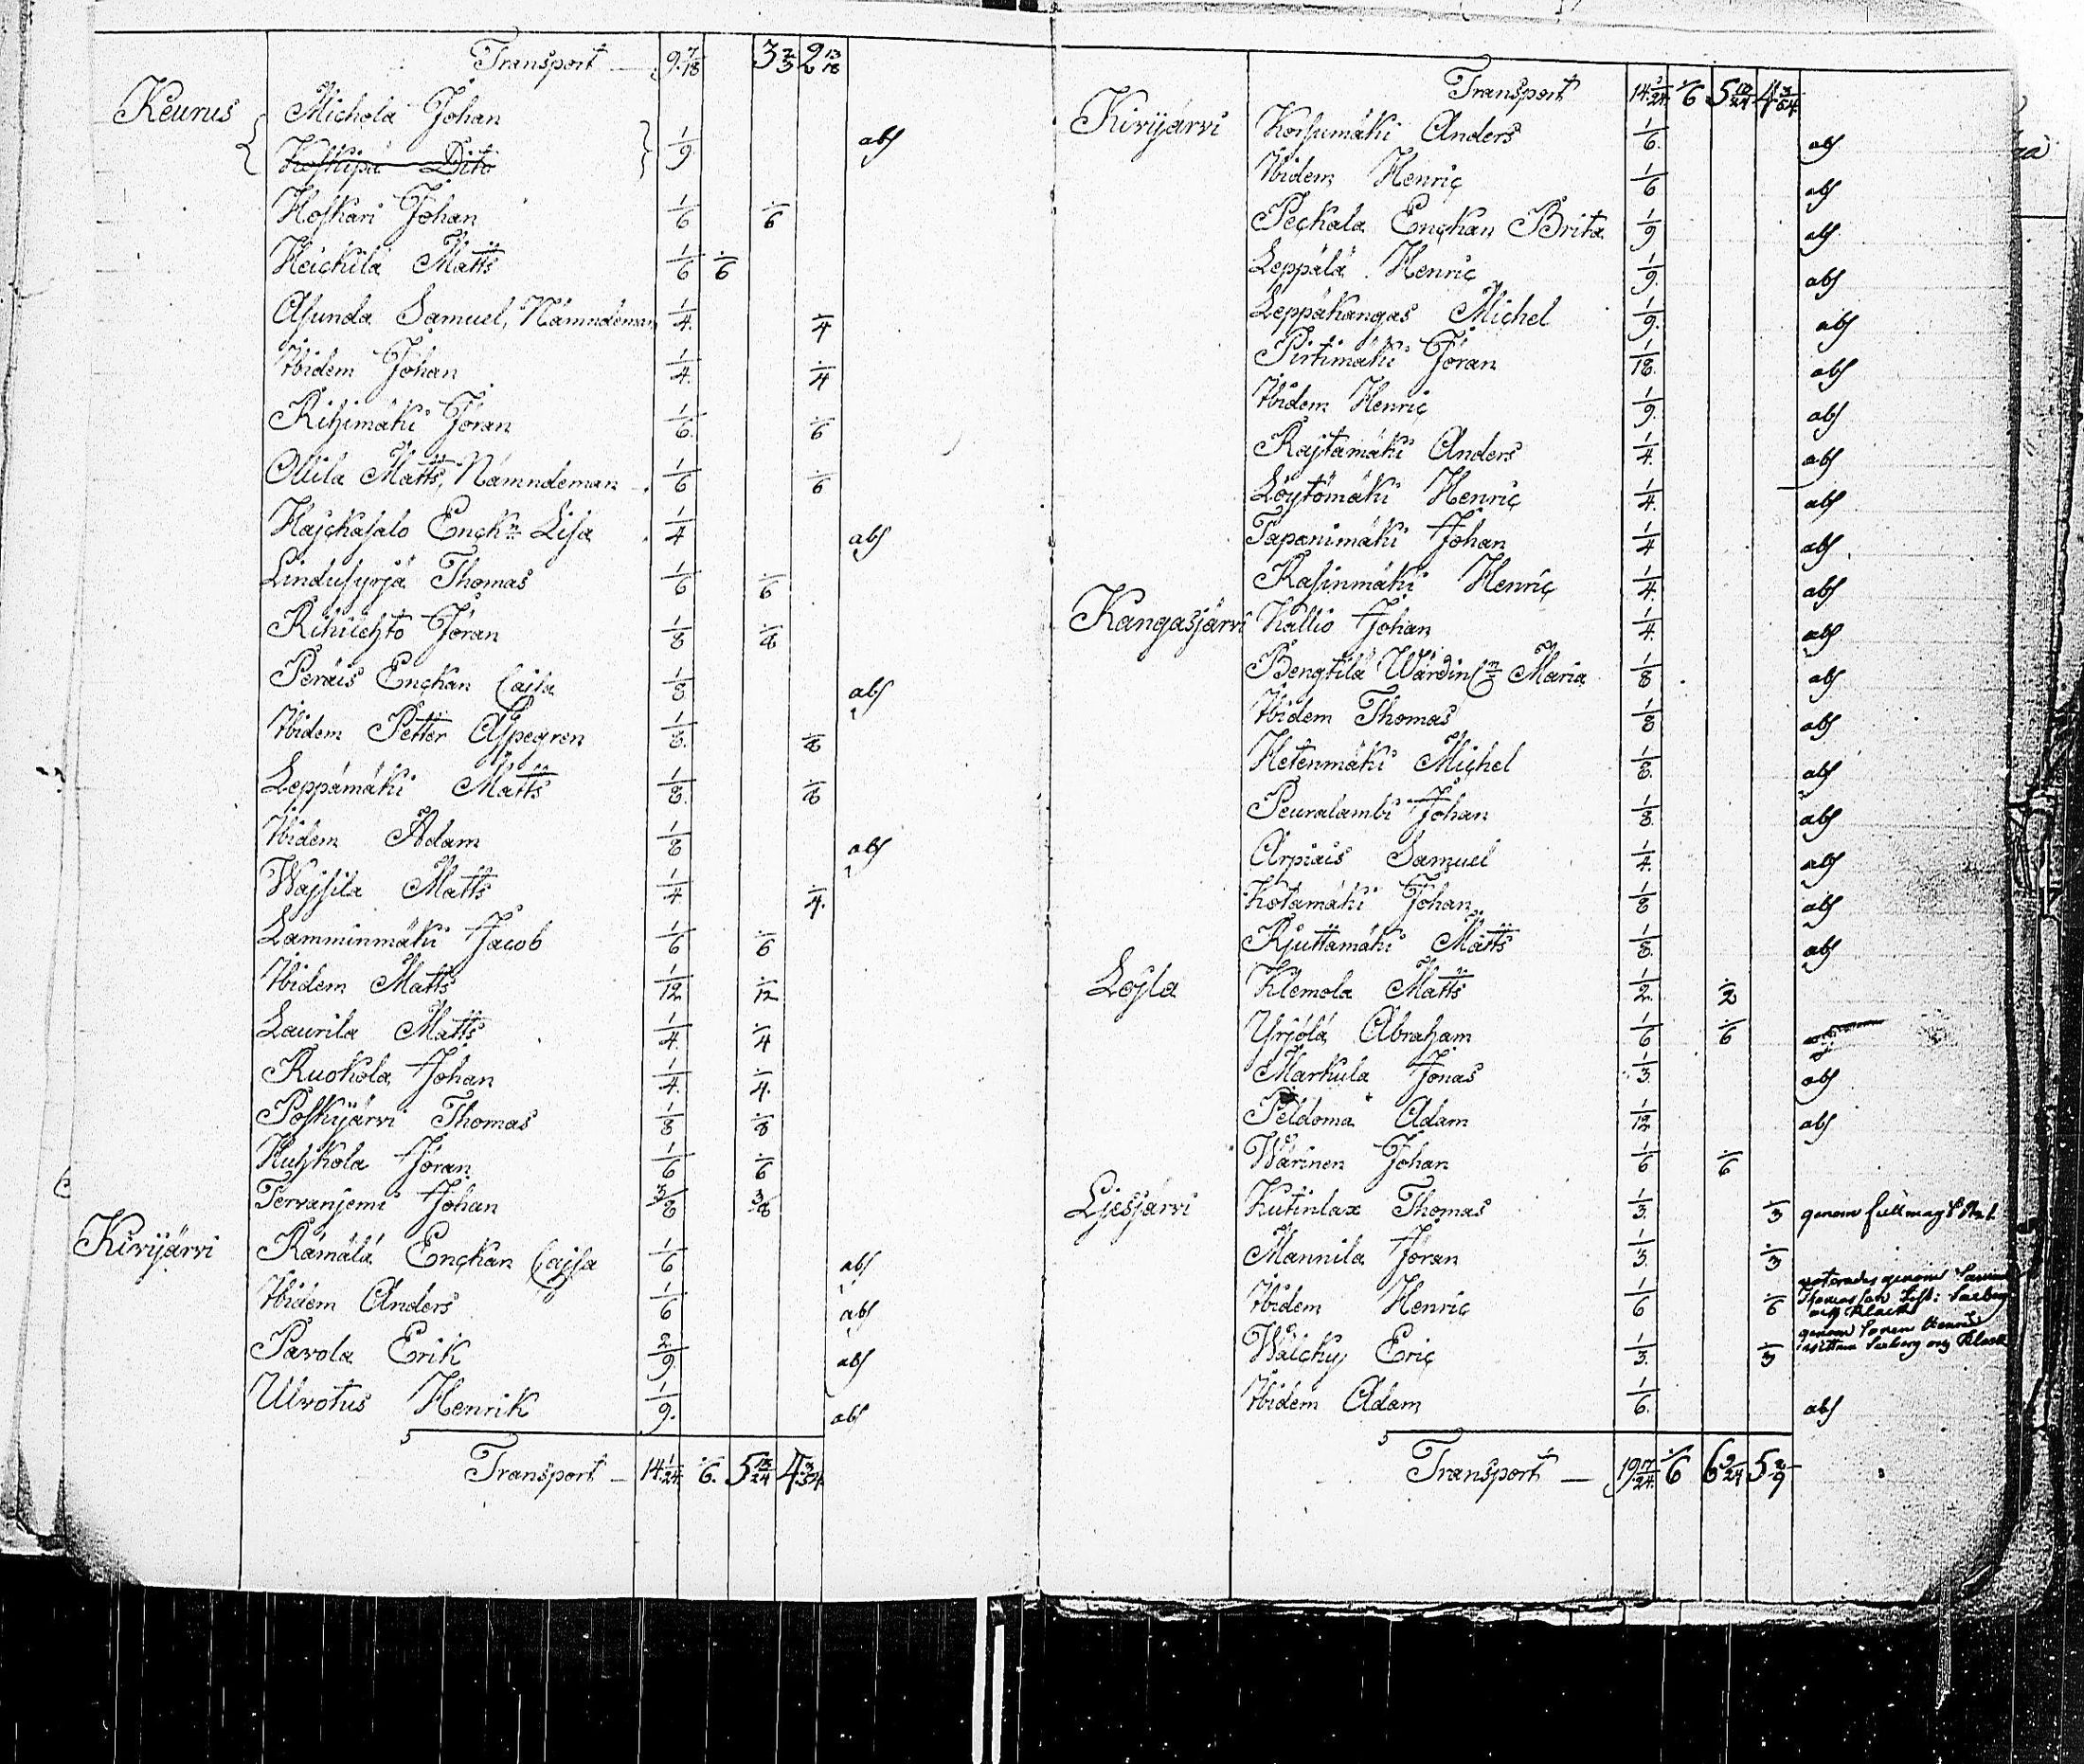 Transport — 9 7/18 3 2/3 2 13/18
Keurus Michola Johan
Koskipä Dito 1/9 abs
Hoskari Johan 1/6 1/6
Heickilä Matts 1/6 1/6
Asunda Samuel, Nämndeman 1/4 1/4
Ibidem Johan 1/4 1/4
Rihimäki Jöran 1/6 1/6
Ollila Matts, Nämndeman 1/6 1/6
Hajckasalo Enckn Lisa 1/4 abs
Lindusyrjä Thomas 1/6 1/6
Jöran 1/8 1/8
Peräis Enckan Cajsa 1/8 abs
Ibidem Petter Aspegren 1/8 1/8
Leppämäki Matts 1/8 1/8
Ibidem Adam 1/8 abs
Wajsila Matts 1/4 1/4
Lamminmäki Jacob 1/6 1/6
Ibidem Matts 1/12 1/12
Laurila Matts 1/4 1/4
Ruokola Johan 1/4 1/4
Poskijärvi Thomas 1/8 1/8
Huhkola Jöran 1/6 1/6
Tervanjemi Johan 3/8 3/8
Kivijärvi Rämälä Enckan Cajsa 1/6 abs
Ibidem Anders 1/6 abs
Pavola Erik 2/9 abs
Ulvotus Henrik 1/9 abs
Transport — 14 1/24 1/6 5 13/24
Transport 14 1/24 1/6
Kivijärvi Korsumäki Anders 1/6 abs
Ibidem Henric 1/6 abs
Peckala Enckan Brita 1/9 abs
Leppälä Henric 1/9 abs
Leppäkangas Michel 1/9 abs
Pirtimäki Jöran 1/18 abs
Ibidem Henric 1/9 abs
Rajtamäki Anders 1/4 abs
Löytömäki Henric 1/4 abs
Tapanimäki Johan 1/4 abs
Rasinmäki Henric 1/4 abs
Kangasjärvi Kallio Johan 1/4 abs
Bengtilä Wärdin Maria 1/8 abs
Ibidem Thomas 1/8 abs
Hetenmäki Michel 1/8 abs
Peuralambi Johan 1/8 abs
Arpiais Samuel 1/4 abs
Kotamäki Johan 1/8 abs
Rjuttamäki Matts 1/8 abs
Löjla Klemola Matts 1/2 1/2
Yrjölä Abraham 1/6 1/6
Markula Jonas 1/3 abs
Peldoma Adam 1/12 abs
Wärinen Johan 1/6 1/6
Ljesjärvi Kutinlax Thomas 1/3 1/3 genom
Mannila Jöran 1/3 1/3
Ibidem Henric 1/6 1/6
Waickuj Eric 1/3 1/3
Ibidem Adam 1/6 abs
Transport — 19 17/24 1/6 6 9/24 5 2/9